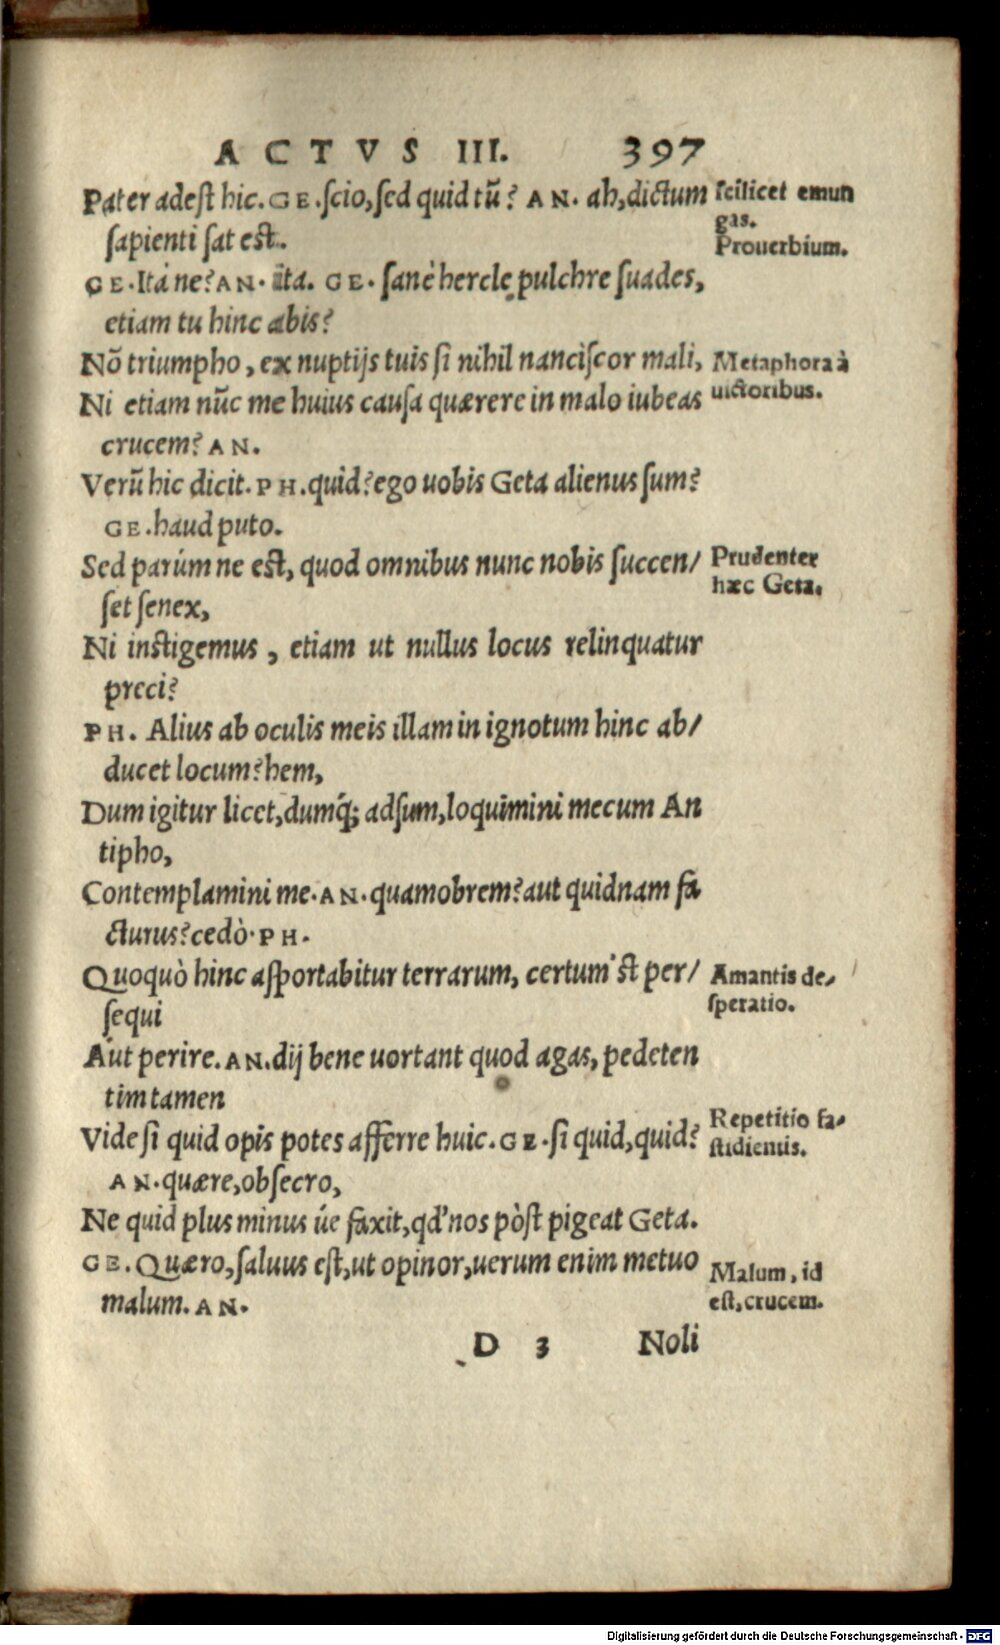 ACTVS III. 397
Pater adest hic. GE. scio, sed quid tũ? AN. ah, dictum
sapienti sat est.
GE. Itáne? AN. ita. GE. sanè hercle pulchre suades,
etiam tu hinc abis?
Nõ triumpho, ex nuptijs tuis si nihil nanciscor mali,
Ni etiam nũc me huius causa quærere in malo iubeas
crucem? AN.
Verũ hic dicit. PH. quid? ego uobis Geta alienus sum?
GE. haud puto.
Sed parúmne est, quod omnibus nunc nobis succen/
set senex,
Ni instigemus, etiam ut nullus locus relinquatur
preci?
PH. Alius ab oculis meis illam in ignotum hinc ab/
ducet locum? hem,
Dum igitur licet, dumq́; adsum, loquimini mecum An
tipho,
Contemplamini me. AN. quamobrem? aut quidnam fa
cturus? cedò. PH.
Quoquò hinc asportabitur terrarum, certum'st per/
sequi
Aut perire. AN. dij bene uortant quod agas, pedeten
tim tamen
Vide si quid opis potes afferre huic. GE. si quid, quid?
AN. quære, obsecro,
Ne quid plus minus úe faxit, qd' nos pòst pigeat Geta.
GE. Quæro, saluus est, ut opinor, uerum enim metuo
malum. AN.
D 3 Noli
scilicet emun
gas.
Prouerbium.
Metaphora à
uictoribus.
Prudenter
hæc Geta.
Amantis de-
speratio.
Repetitio fa-
stidientis.
Malum, id
est, crucem.
Digitalisierung gefördert durch die Deutsche Forschungsgemeinschaft - DFG